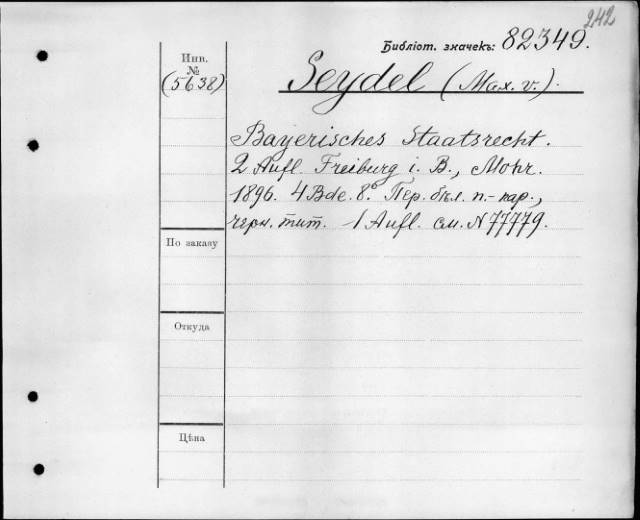 242
Библіот. значекъ: 82349.
Инв.
№
(5638)
Seydel (Max. v.).
Bayerisches Staatsrecht.
2 Aufl. Freiburg i. B., Mohr.
1896. 4 Bde. 8° Пер. бѣл. п.-пар.,
черн. тит. 1 Aufl. см. N 77779.
По заказу
Откуда
Цѣна